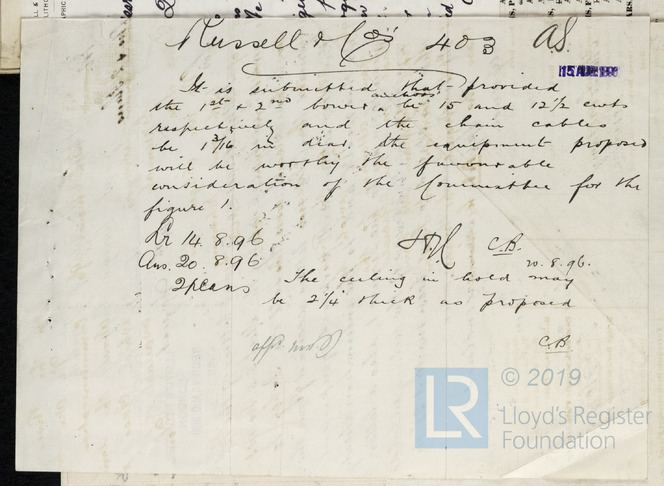 Russell & Co's 403 AS.
It is submitted that provided
the 1st & 2nd bower anchors be 15 and 12 1/2 cwts
respectively and the chain cables
be 1 3/16 in diar. the equipment proposed
will be worthy the favourable
consideration of the Committee for the
figure 1.
Lr 14.8.96
Ans. 20.8.96
2 plans
C.B.
20.8.96.
The ceiling in hold may
be 2 1/4 thick as proposed
C.B
LR
© 2019
Lloyd's Register
Foundation